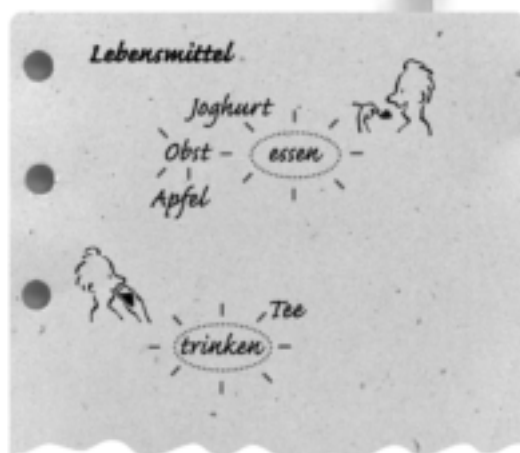 Lebensmittel
Joghurt
Obst
essen
Apfel
Tee
trinken